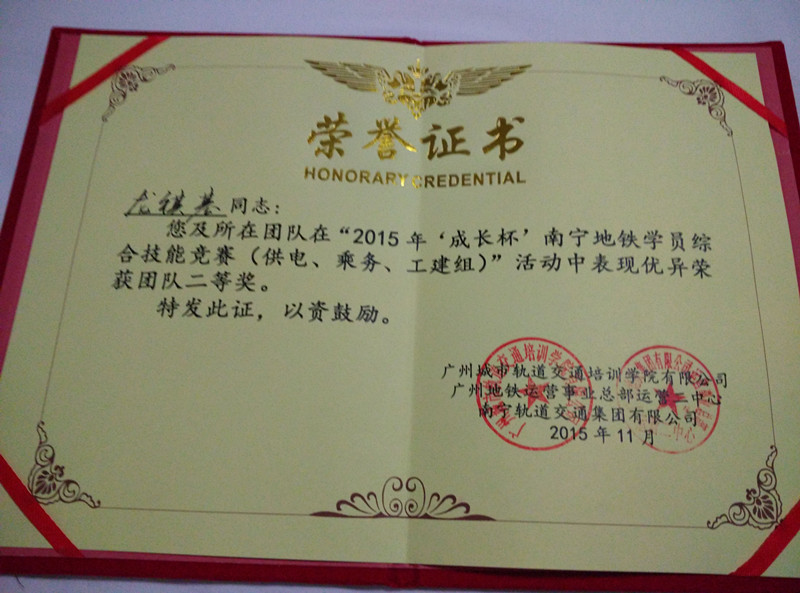 荣誉证书
HONORARY CREDENTIAL
龙祺基同志：
您及所在团队在“2015年‘成长杯’南宁地铁学员综
合技能竞赛（供电、乘务、工建组）”活动中表现优异荣
获团队二等奖。
特发此证，以资鼓励。
广州城市轨道交通培训学院有限公司
广州地铁运营事业总部运营二中心
南宁轨道交通集团有限公司
2015年11月